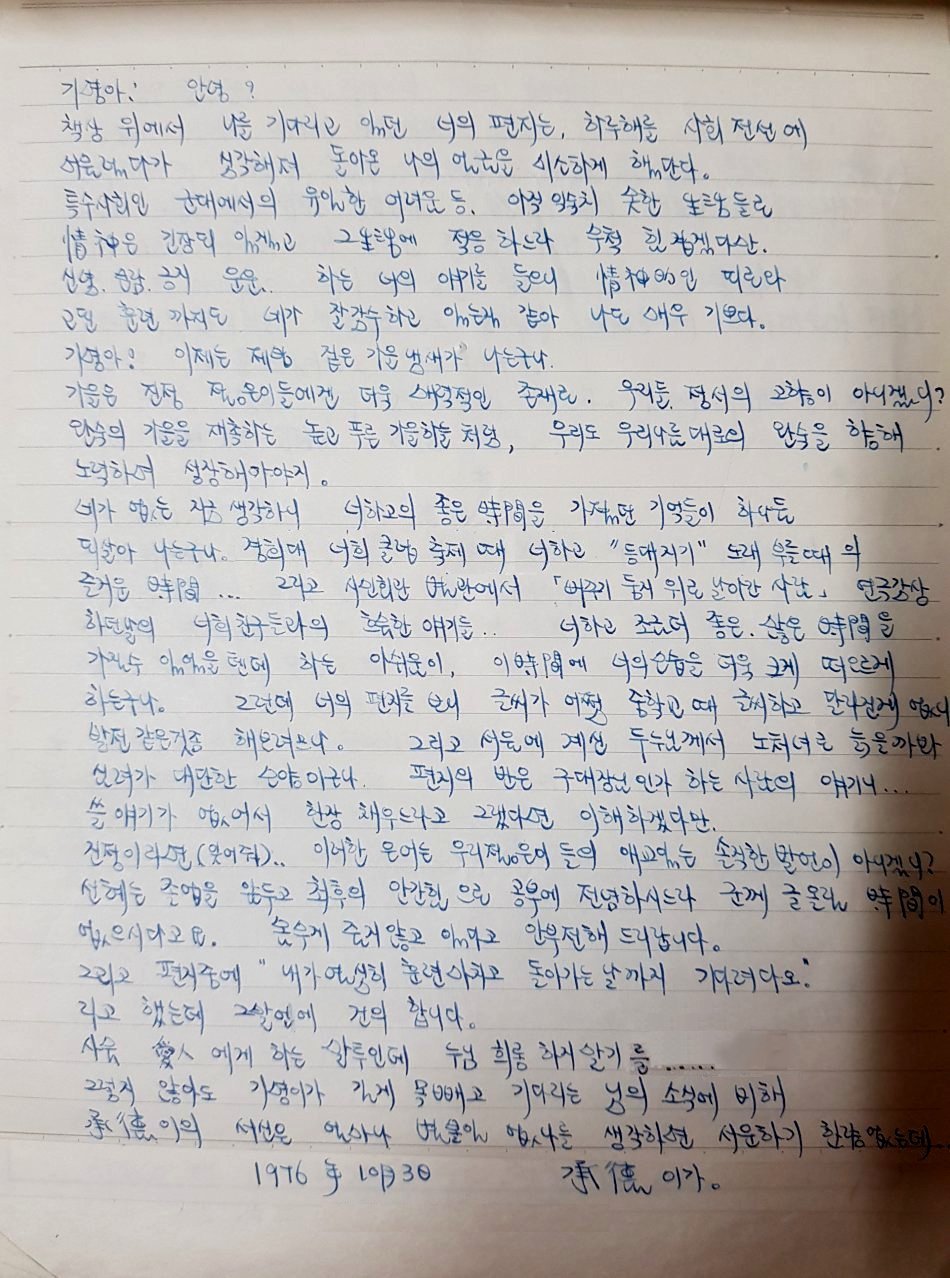 기영아! 안녕?
책상 위에서 나를 기다리고 있던 너의 편지는, 하루해를 사회 전선에
시달렸다가 돌아온 나의 얼굴을 미소하게 했단다.
특수사회인 군대에서의 유일한 어려운 등. 아직 익숙치 못한 生活들로
情神은 긴장되 있겠고 그 生活에 적응하느라 수척 해졌겠다만.
하는 너의 얘기를 들으니 情神的인 따르라
고된 훈련 까지도 네가 잘 감수하고 있는것 같아 나도 매우 기쁘다.
기영아! 이제는 제법 짙은 가을 냄새가 나는구나.
가을은 진정 젊은이들에겐 더욱 매력적인 존재로. 우리들 정서의 고향이 아니겠니?
완숙의 가을을 재촉하는 높고 푸른 가을하늘 처럼, 우리도 우리나름대로의 완숙을 향해
노력하며 성장해 가야지.
네가 없는 지금 생각하니 너하고의 좋은 時間을 가졌던 기억들이 하나둘
되살아 나는구나. 경희대 너희 클럽 축제 때 너하고 "등대지기" 노래 부를때의
즐거운 時間 ... 그리고 시민회관 별관에서 「뻐꾸기 둥지 위로 날아간 사람」 연극감상
하던날의 너희 친구들과의 흐뭇한 얘기들.. 너하고 조금더 좋은. 많은 時間을
가질수 있었을 텐데 하는 아쉬움이, 이 時間에 너의 모습을 더욱 크게 떠오르게
하는구나. 그런데 너의 편지를 보니 글씨가 어쩜 중학교 때 글씨하고 달라진게 없니
발전 같은것좀 해보려므나. 그리고 서울에 계신 두누님께서 노처녀로 늙을까봐
염려가 대단한 모양이구나. 편지의 반은 구대장님인가 하는 사람의 얘기니...
쓸 얘기가 없어서 한장 채우느라고 그랬다면 이해하겠다만.
진정이라면 (웃어줘).. 이러한 문어는 우리젊은이 들의 애교있는 솔직한 발언이 아니겠니?
선혜는 졸업을 앞두고 최후의 안간힘으로 공부에 전념하시느라 군께 글올릴 時間이
없으시다고요. 몸수게 죽지않고 있다고 안부전해 드리랍니다.
그리고 편지중에 "내가 열심히 훈련마치고 돌아가는 날까지 기다려다오."
라고 했는데 그 말엔에 건의 합니다.
사유 愛人 에게 하는 말투인데 누님 희롱 하지 말기를......
그렇지 않아도 기영이가 길게 목빼고 기다리는 님의 소식에 비해
承德이의 서신은 얼마나 별볼일 없나를 생각하면 서운하기 한량없는데..
1976年 10月 3日 承德이가.